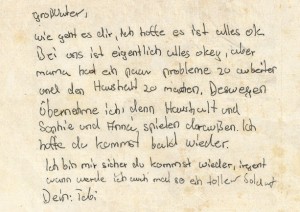 großvater,
wie geht es dir, Ich hoffe es ist alles ok.
Bei uns ist eigentlich alles okey, aber
mama hat ein paar probleme zu arbeiten
und den Haushalt zu machen. Deswegen
übernehme ich denn Haushalt und
Sophie und Anna, spielen daraußen. Ich
hoffe du kommst bald wieder.
Ich bin mir sicher du kommst wieder, irgent
wann werde ich auch mal so ein toller Soldat
Dein: Tobi